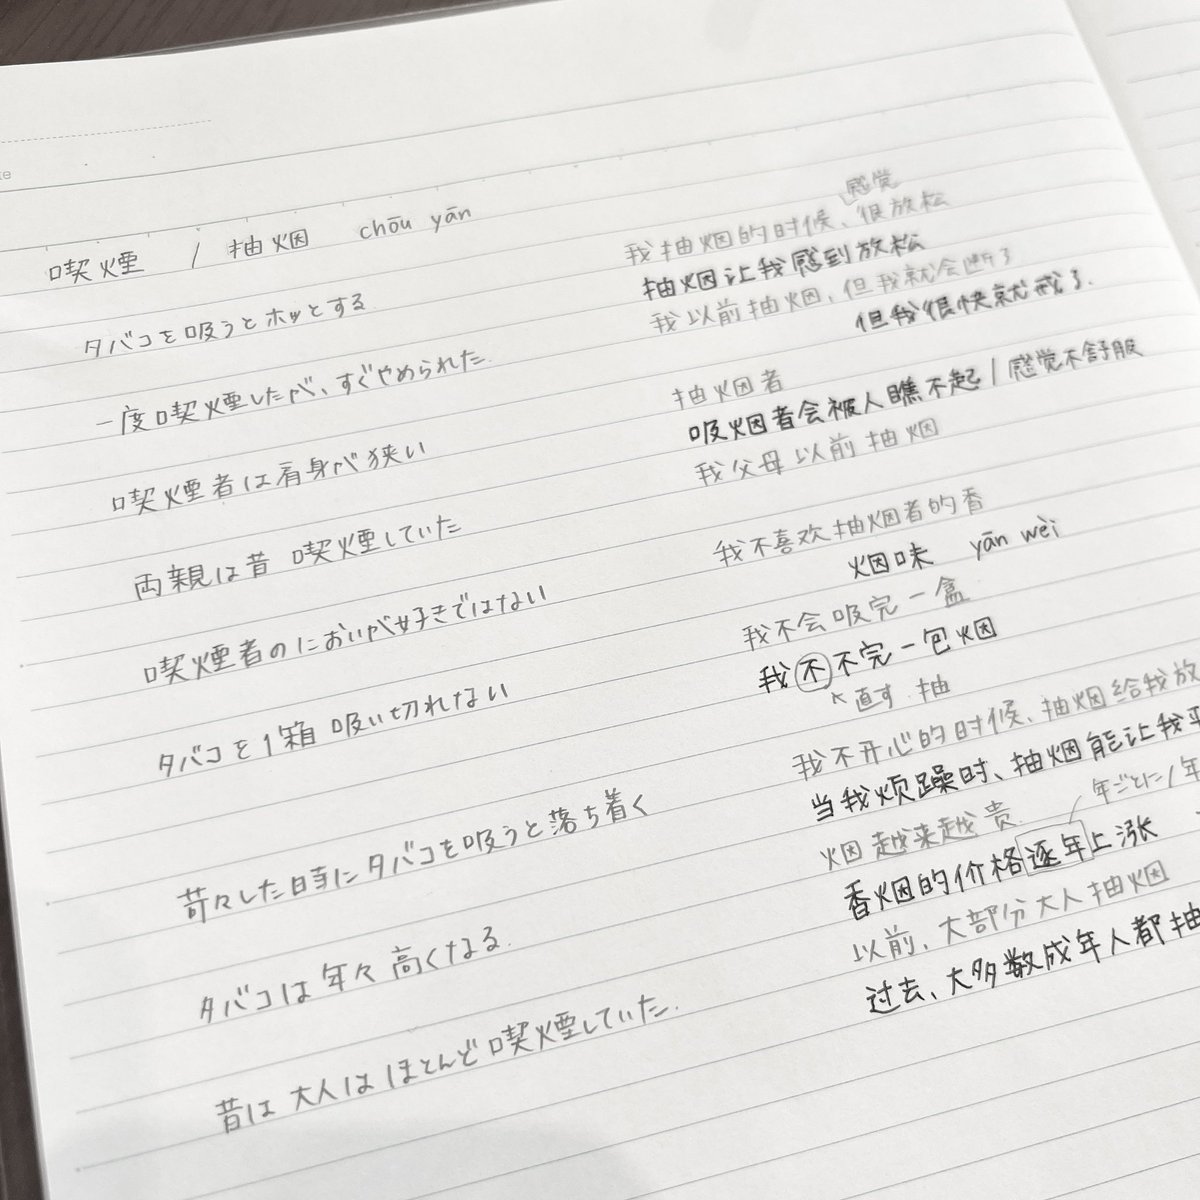 te
喫煙 / 抽烟 chōu yān
タバコを吸うとホッとする
一度喫煙したが、すぐやめられた.
喫煙者は肩身が狭い
両親は昔 喫煙していた
喫煙者のにおいが好きではない
タバコを1箱 吸い切れない
苛々した時にタバコを吸うと落ち着く
タバコは年々高くなる.
昔は大人はほとんど喫煙していた.
感覚
我抽烟的时候、很放松
抽烟让我感到放松
我以前抽烟, 但我就会断了
但我很快就戒了.
抽烟者
吸烟者会被人瞧不起 / 感觉不舒服
我父母以前抽烟
我不喜欢抽烟者的香
烟味 yān wèi
我不会吸完一盒
我不不完一包烟
直す 抽
我不开心的时候、抽烟给我放
当我烦躁时、抽烟能让我平
烟越来越贵. 年ごとに/年
香烟的价格逐年上涨
以前、大部分大人抽烟
过去、大多数成年人都抽